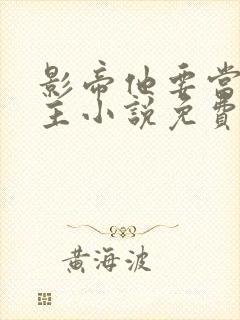 影帝他要當
主小說免費
黃海波